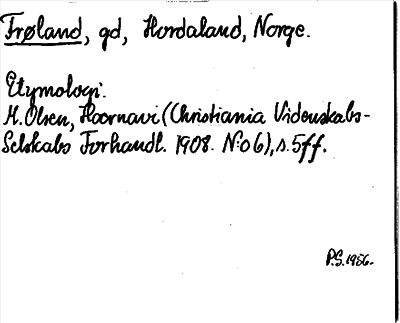 Frøland, gd, Hordaland, Norge.
Etymologi:
M. Olsen, Hærnavi (Christiania Videnskabs-
Selskabs Forhandl. 1908. No 6), s. 5ff.
P.S. 1956.